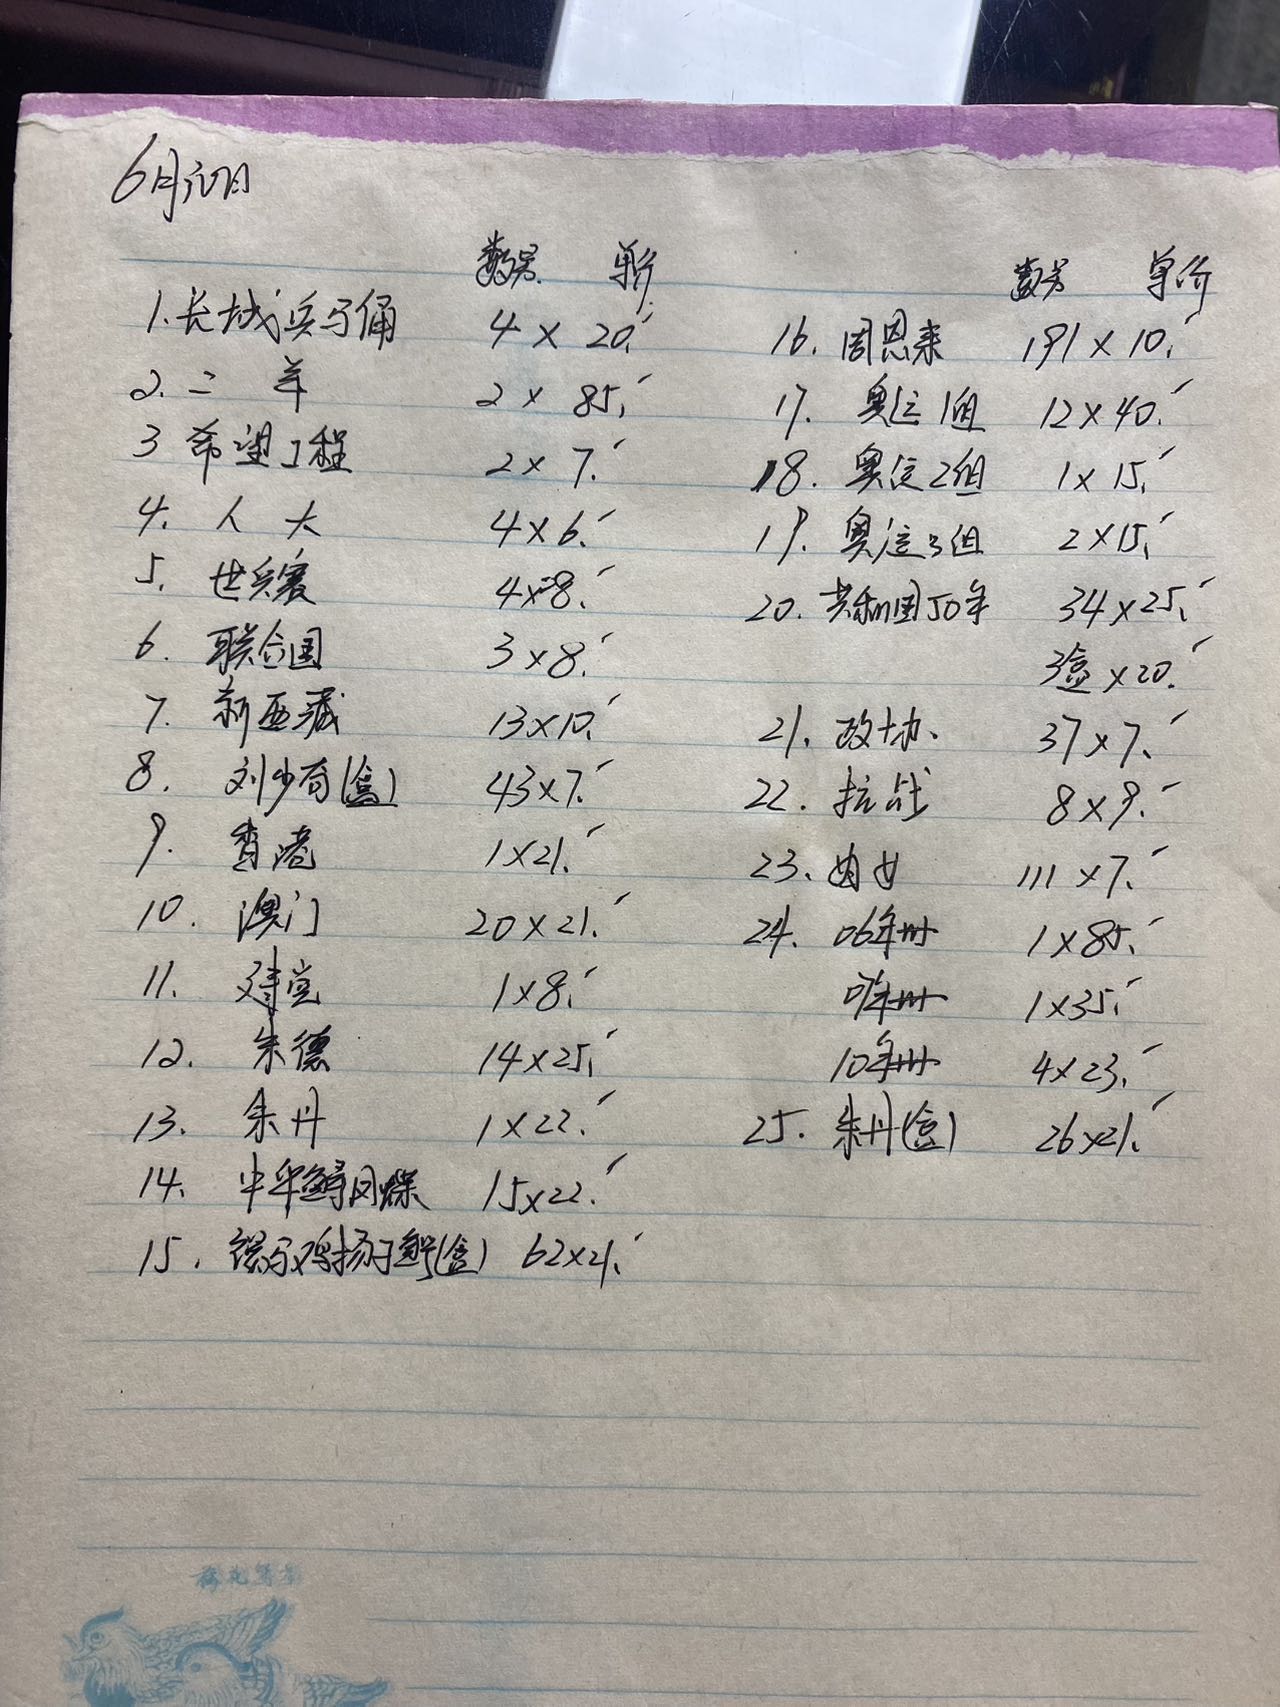 6月
数另 单价
1.长城兵马俑 4×20.
2.二 羊 2×85.
3 希望工程 2×7.
4. 人大 4×6.
5. 世乒赛 4×8.
6. 联合国 3×8.
7. 新西藏 13×10.
8. 刘少奇(盒) 43×7.
9. 香港 1×21.
10. 澳门 20×21.
11. 建党 1×8.
12. 朱德 14×25.
13. 朱丹 1×22.
14. 中华鲟凤蝶 15×22.
15. 褐马鸡扬子鳄(盒) 62×21.
数另 单价
16. 周恩来 191×10.
17. 奥运1组 12×40.
18. 奥运2组 1×15.
19. 奥运3组 2×15.
20. 共和国50年 34×25.
3盒×20.
21. 政协. 37×7.
22. 抗战 8×9.
23. 妇女 111×7.
24. 06年册 1×85.
年册 1×35.
10年册 4×23.
25. 朱丹(盒) 26×21.